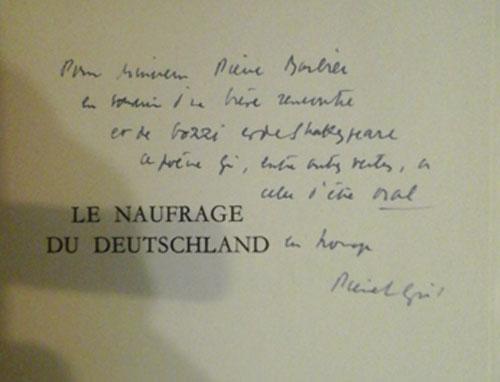 Pour Monsieur Pierre Barbier
en souvenir d'une brève rencontre
et de Gozzi et de Shakespeare
ce poème qui, entre autres vertus, a
celle d'être oral
LE NAUFRAGE
DU DEUTSCHLAND en hommage